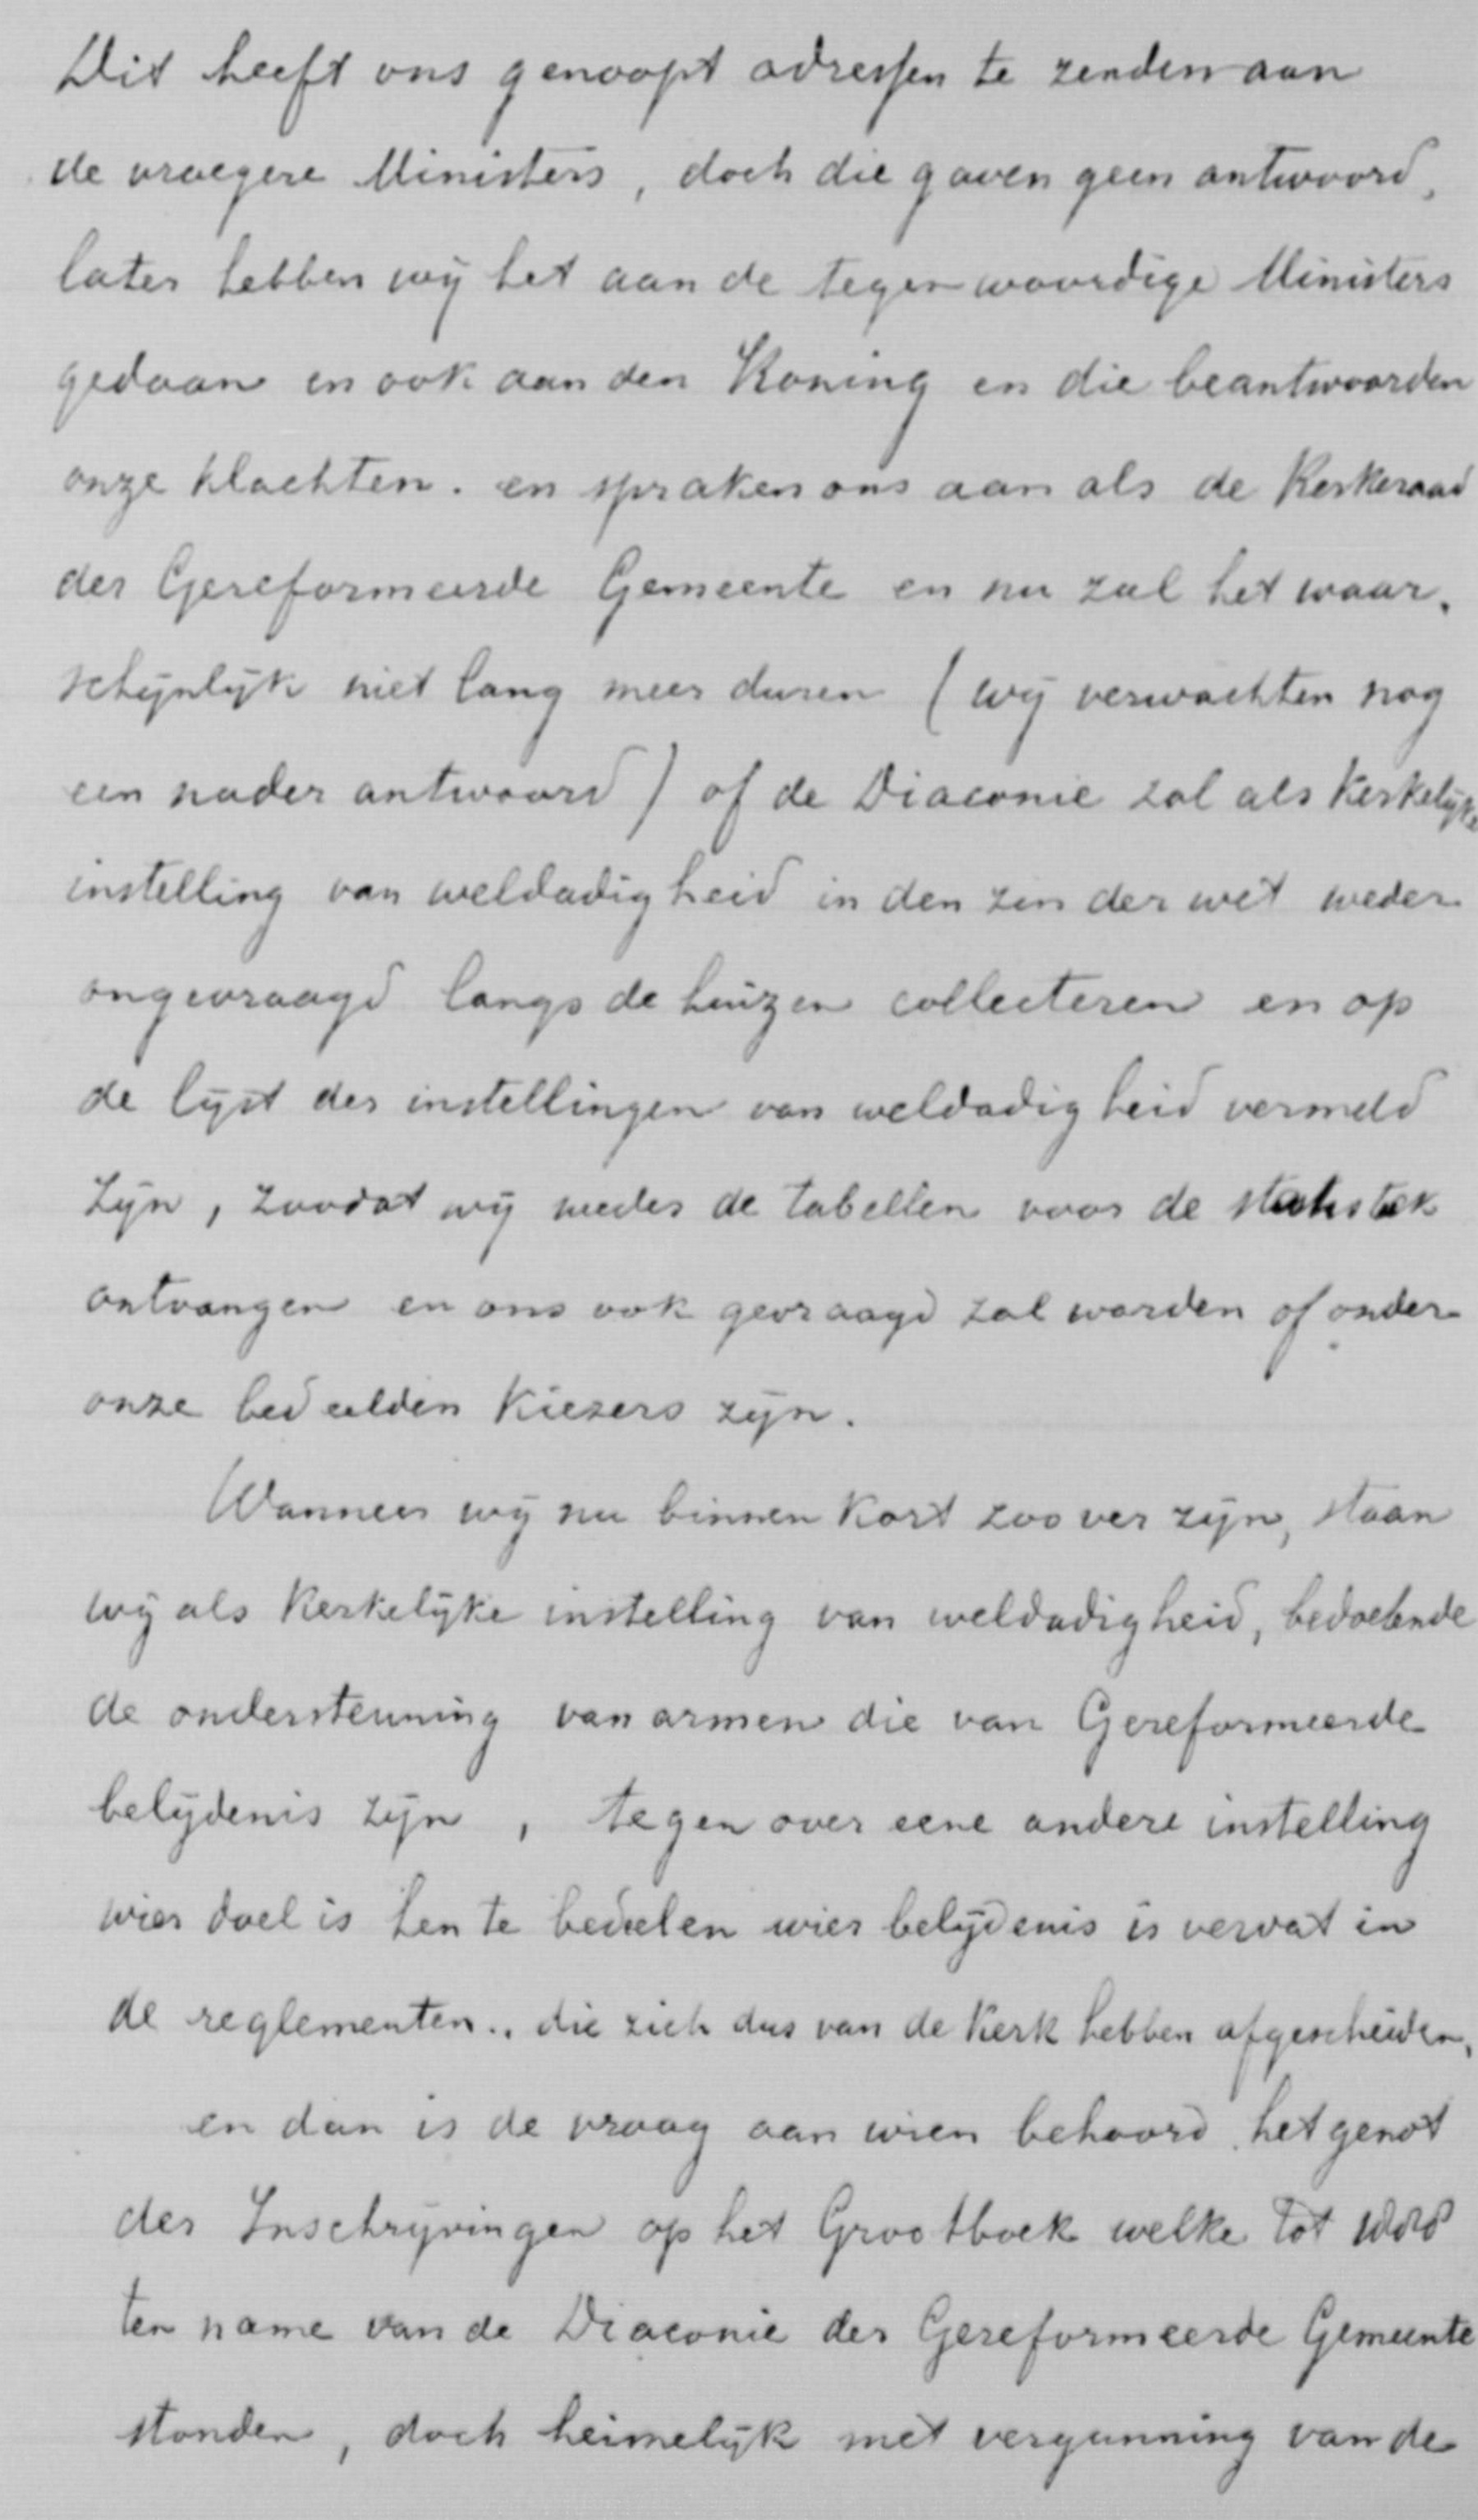 Dit heeft ons genoopt adressen te zenden aan
de vroegere Ministers, doch die gaven geen antwoord,
later hebben wij het aan de tegenwoordige Ministers
gedaan en ook aan den Koning en die beantwoorden
onze klachten. en spraken ons aan als de Kerkeraad
der Gereformeerde Gemeente en nu zal het waar-
schijnlijk niet lang meer duren (wij verwachten nog
een nader antwoord) of de Diaconie zal als Kerkelijke
instelling van weldadigheid in den zin der wet weder
ongevraagd langs de huizen collecteren en op
de lijst der instellingen van weldadigheid vermeld
zijn, zoodat wij weder de tabellen voor de statistiek
ontvangen en ons ook gevraagd zal worden of onder
onze bedeelden Kiezers zijn.
Wanneer wij nu binnen kort zoo ver zijn, staan
wij als Kerkelijke instelling van weldadigheid, bedoelende
de ondersteuning van armen die van Gereformeerde
belijdenis zijn, tegenover eene andere instelling
wier doel is hen te bedeelen wier belijdenis is vervat in
de reglementen.. die zich dus van de Kerk hebben afgescheiden,
en dan is de vraag aan wien behoord het genot
der Inschrijvingen op het Grootboek welke tot
ten name van de Diaconie der Gereformeerde Gemeente
stonden, doch heimelijk met vergunning van de